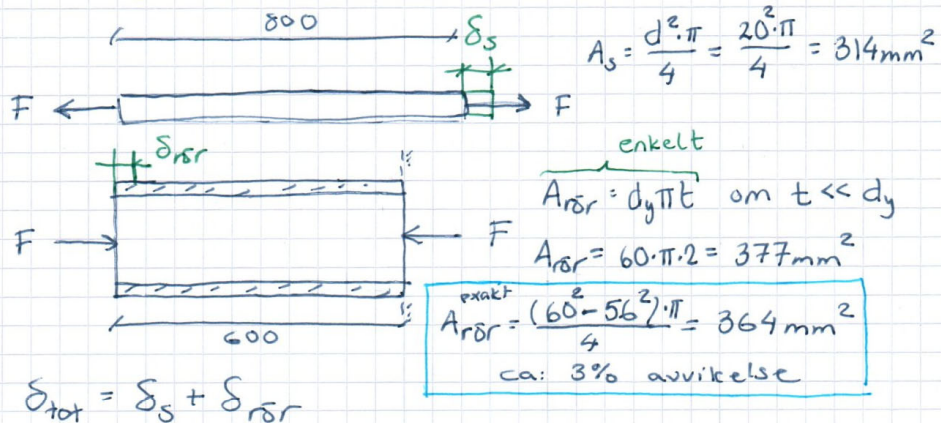 800
δs
F F
As = d²·π/4 = 20²·π/4 = 314mm²
enkelt
δrör
Arör = dyπt om t << dy
F F
Arör = 60·π·2 = 377mm²
exakt
Arör = (60² - 56²)·π/4 = 364mm²
ca: 3% avvikelse
600
δtot = δs + δrör